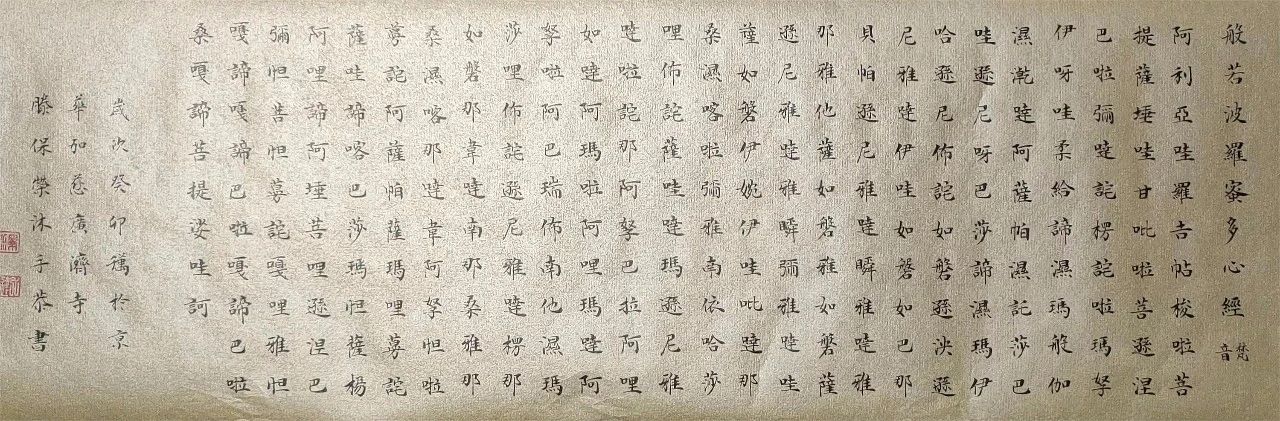 般若波羅蜜多心經 梵音
阿利亞哇羅吉帖梭啦菩
提薩埵哇甘吡啦菩遜涅
巴啦彌噠詑楞詑啦瑪拏
伊呀哇柔給諦濕瑪般伽
濕漧噠阿薩帕濕託莎巴
哇遜尼呀巴莎諦濕瑪伊
哈遜尼佈詑如磐遜泱遜
尼雅噠伊哇如磐如巴那
貝帕遜尼雅噠瞬雅噠雅
那雅他薩如磐雅如磐薩
遜尼雅噠雅瞬彌雅噠哇
薩如磐伊婉伊哇吡噠那
桑濕喀啦彌雅南依哈莎
哩佈詑薩哇噠瑪遜尼雅
噠啦詑那阿拏巴拉阿哩
如噠阿瑪啦阿哩瑪噠阿
拏啦阿巴瑞佈南他濕瑪
莎哩佈詑遜尼雅噠楞那
如磐那韋噠南那桑雅那
桑濕喀那噠韋阿拏怛啦
蓦詑阿薩帕薩瑪哩蓦詑
薩哇諦喀巴莎瑪怛薩楊
阿哩諦阿埵菩哩遜涅巴
彌怛菩怛蓦詑嘎哩雅怛
嘎諦嘎諦巴啦嘎諦巴啦
桑嘎諦菩提娑哇訶
歲次癸卯 於京
華弘慈廣濟寺
滕保榮沐手恭書